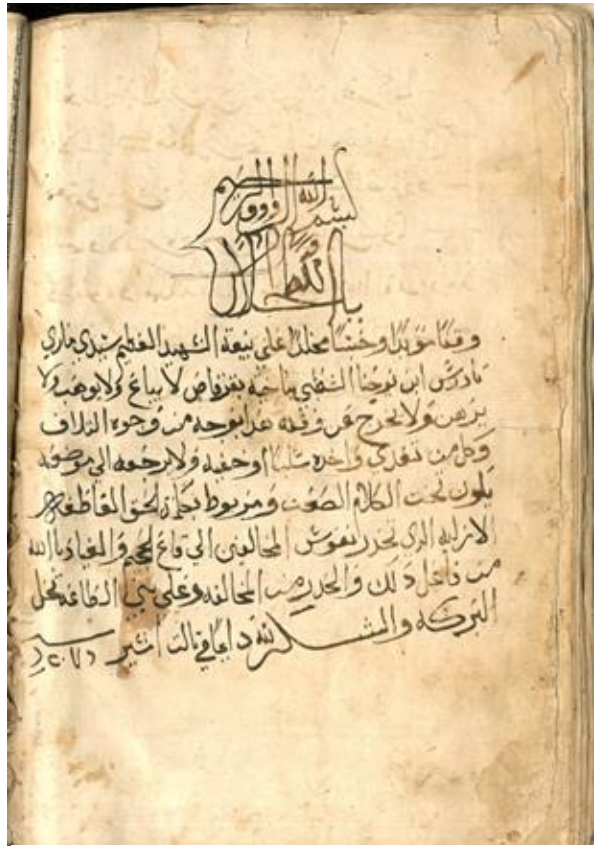 بسم الله الرووف الرحيم
وقفًا موبدًا وحبسًا مخلدًا على بيعة الشهيد العظيم سيدي ماري
تادرس ابن يوحنا الشطبي بناحية لا يباع ولا يوهب ولا
يرهن ولا يخرج عن وقفه هدا بوجه من وجوه التلاف
وكل من تعدي واخده سلبًا او خفيه ولا يرجعه الي موضعه
يكون تحت الكلام الصعب ومربوط بكلمة الحق القاطعه
الازليه الدي تحدر نفوس المخالفين الي قاع الجحيم والعياد بالله
من فاعل دلك والحدر من المخالفه وعلي بني الطاعه تحل
البركه والشكر لله دايما في تالت امشير